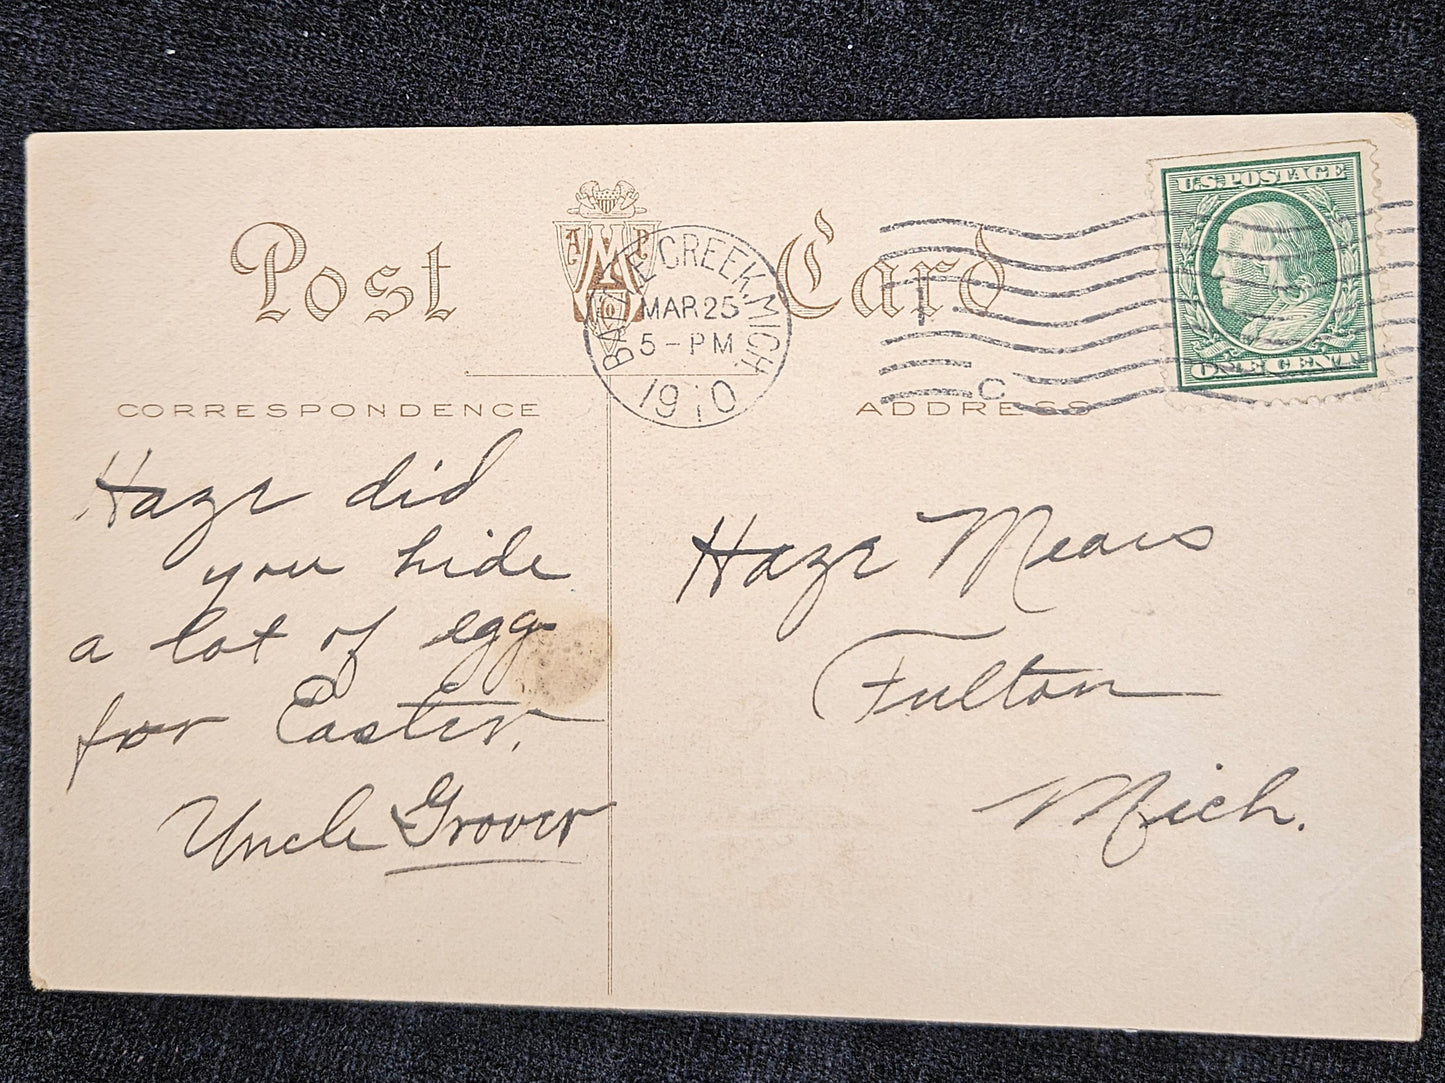 Post Card
A M P
CO
BATTLE CREEK, MICH.
MAR 25
5 - PM
1910
C
U.S. POSTAGE
ONE CENT
CORRESPONDENCE
ADDRESS
Haze did
you hide
a lot of egg
for Easter.
Uncle Grover
Haze Mears
Fulton
Mich.